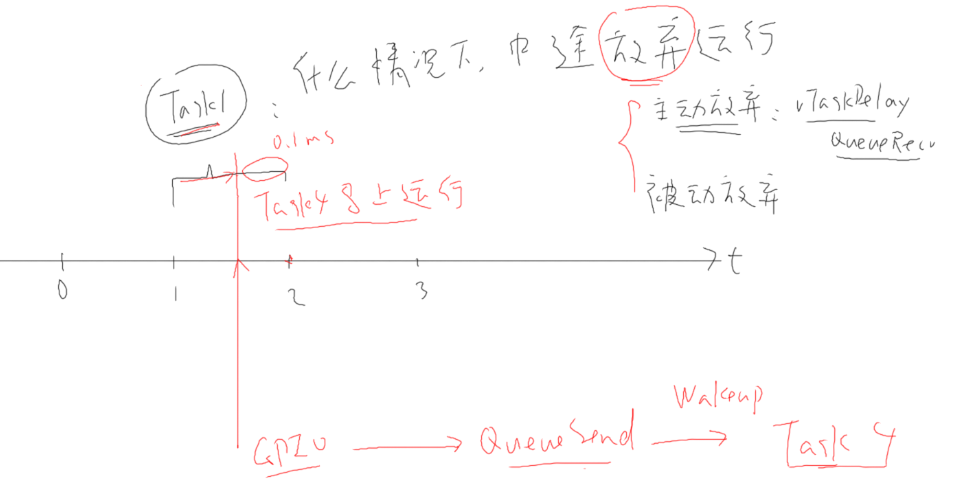 Task1：什么情况下，中途放弃运行
主动放弃：vTaskDelay
QueueRecv
被动放弃
0.1ms
Task4马上运行
0 1 2 3 t
GPIO QueueSend Wakeup Task 4